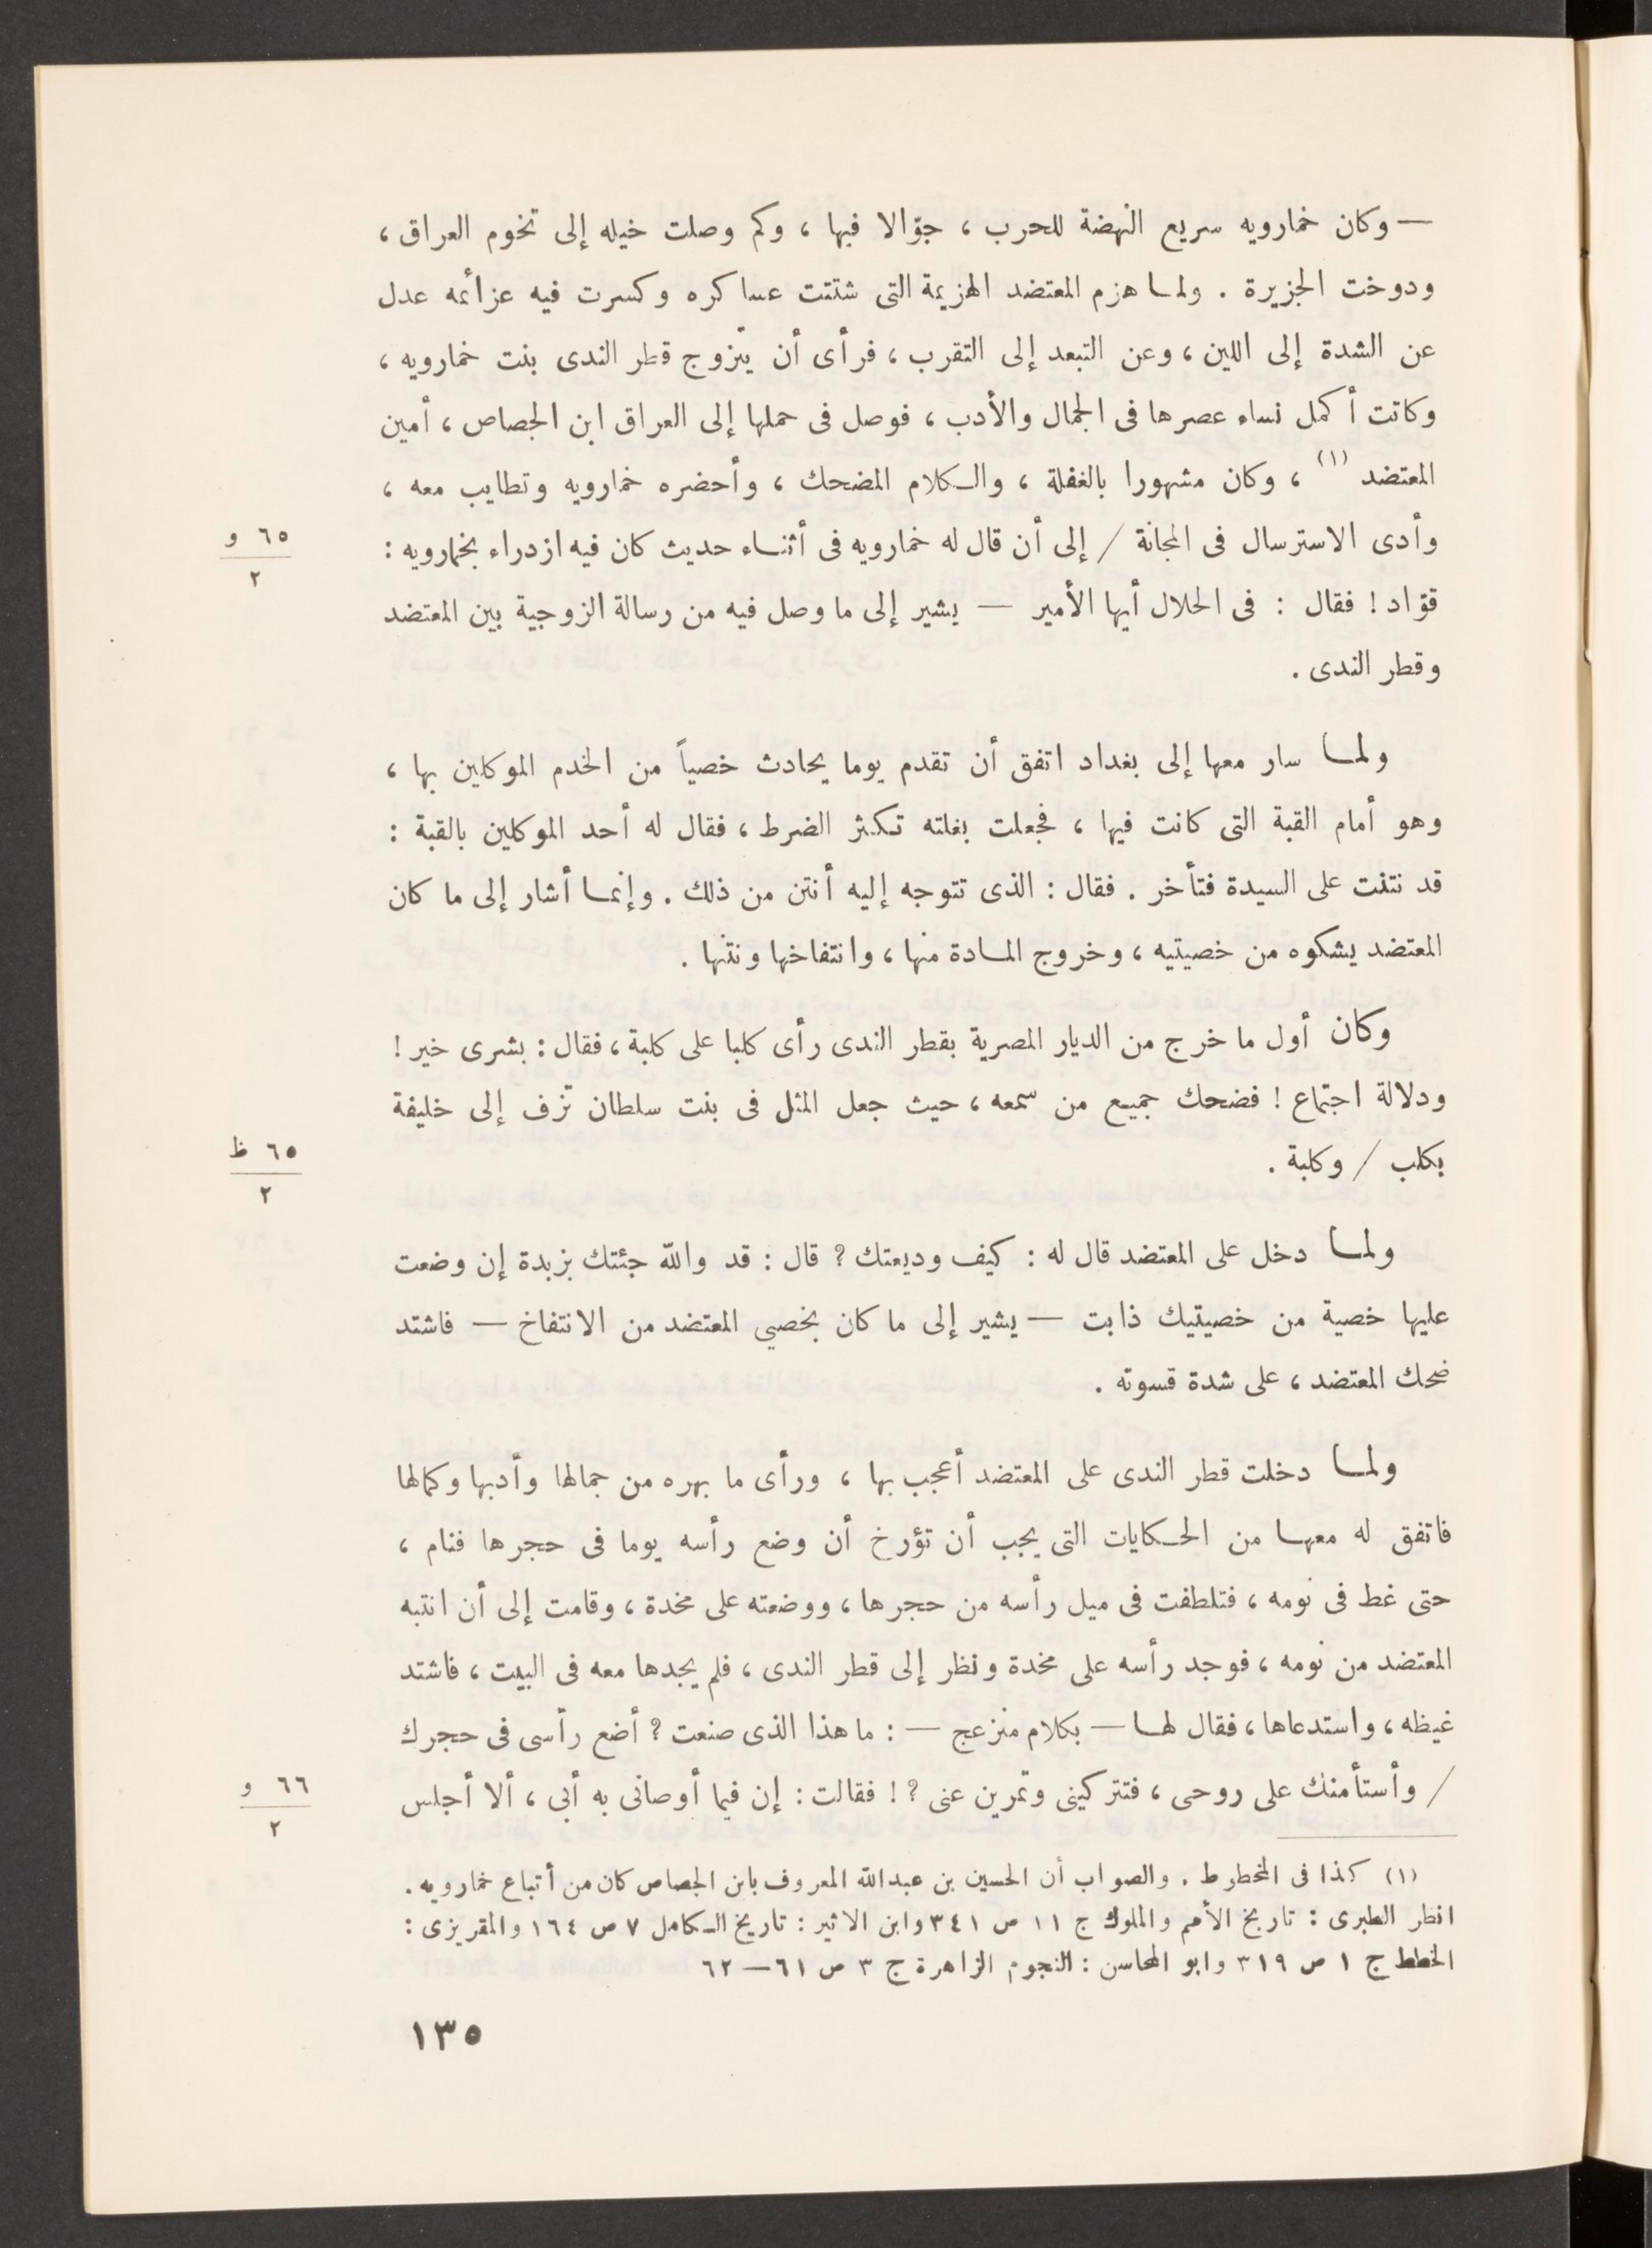 — وكان خمارويه سريع النهضة للحرب ، جوّالا فيها ، وكم وصلت خيله إلى تخوم العراق ،
ودوخت الجزيرة . ولما هزم المعتضد الهزيمة التى شتتت عساكره وكسرت فيه عزائمه عدل
عن الشدة إلى اللين ، وعن التبعد إلى التقرب ، فرأى أن يتزوج قطر الندى بنت خمارويه ،
وكانت أكمل نساء عصرها فى الجمال والأدب ، فوصل فى حملها إلى العراق ابن الجصاص ، أمين
المعتضد (١) ، وكان مشهورا بالغفلة ، والكلام المضحك ، وأحضره خمارويه وتطايب معه ،
وأدى الاسترسال فى المجانة / إلى أن قال له خمارويه فى أثناء حديث كان فيه ازدراء بخمارويه :
٦٥ و
٢
قوّاد ! فقال : فى الحلال أيها الأمير — يشير إلى ما وصل فيه من رسالة الزوجية بين المعتضد
وقطر الندى .
ولما سار معها إلى بغداد اتفق أن تقدم يوما يحادث خصياً من الخدم الموكلين بها ،
وهو أمام القبة التى كانت فيها ، فجعلت بغلته تكثر الضرط ، فقال له أحد الموكلين بالقبة :
قد نتنت على السيدة فتأخر . فقال : الذى تتوجه إليه أنتن من ذلك . وإنما أشار إلى ما كان
المعتضد يشكوه من خصيتيه ، وخروج المادة منها ، وانتفاخها ونتنها .
وكان أول ما خرج من الديار المصرية بقطر الندى رأى كلبا على كلبة ، فقال : بشرى خير !
ودلالة اجتماع ! فضحك جميع من سمعه ، حيث جعل المثل فى بنت سلطان تزف إلى خليفة
بكلب / وكلبة .
٦٥ ظ
٢
ولما دخل على المعتضد قال له : كيف وديعتك ? قال : قد والله جئتك بزبدة إن وضعت
عليها خصية من خصيتيك ذابت — يشير إلى ما كان بخصيي المعتضد من الانتفاخ — فاشتد
ضحك المعتضد ، على شدة قسوته .
ولما دخلت قطر الندى على المعتضد أعجب بها ، ورأى ما بهره من جمالها وأدبها وكمالها
فاتفق له معها من الحكايات التى يجب أن تؤرخ أن وضع رأسه يوما فى حجرها فنام ،
حتى غط فى نومه ، فتلطفت فى ميل رأسه من حجرها ، ووضعته على مخدة ، وقامت إلى أن انتبه
المعتضد من نومه ، فوجد رأسه على مخدة ونظر إلى قطر الندى ، فلم يجدها معه فى البيت ، فاشتد
غيظه ، واستدعاها ، فقال لها — بكلام منزعج — : ما هذا الذى صنعت ? أضع رأسى فى حجرك
/ وأستأمنك على روحى ، فتتركينى وتمرين عنى ? ! فقالت : إن فيما أوصانى به أبى ، ألا أجلس
٦٦ و
٢
(١) كذا فى المخطوط . والصواب أن الحسين بن عبدالله المعروف بابن الجصاص كان من أتباع خمارويه .
انظر الطبرى : تاريخ الأمم والملوك ج ١١ ص ٣٤١ وابن الاثير : تاريخ الكامل ٧ ص ١٦٤ والمقريزى :
الخطط ج ١ ص ٣١٩ وابو المحاسن : النجوم الزاهرة ج ٣ ص ٦١—٦٢
١٣٥